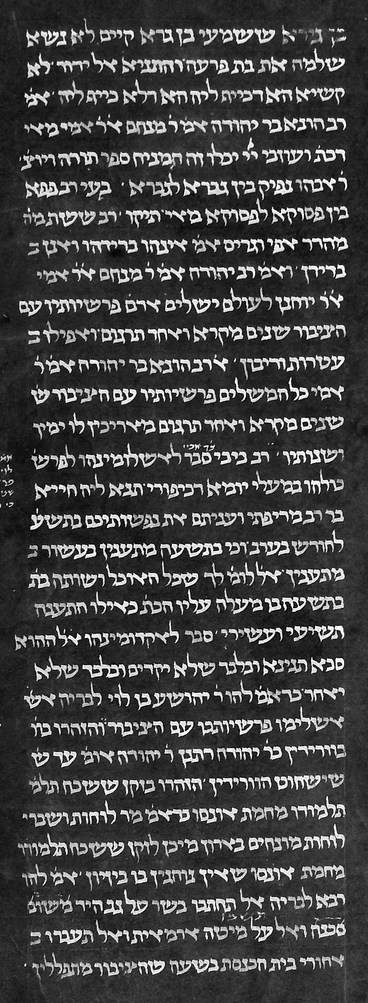 בן גירא ששמעי בן גרא קיים לא נשא
שלמה את בת פרעה והתניא אל יהוד׳ לא
קשיא הא דכייף ליה הא דלא כייף ליה ׳ אמ׳
רב הונא בר יהודה אמ׳ ר׳ מנחם א״ר אמי מאי
דכת׳ ועוזבי יי׳ יכלו זה המניח ספר תורה ויוצ׳
ר׳ אבהו נפיק בין גברא לגברא ׳ בעי רב פפא
בין פסוקא לפסוקא מאי תיקו ׳ רב ששת מה׳
מהדר אפי וגריס אמ׳ אינהו בדידהו ואנן ב
בדידן ׳ ואמ׳ רב יהודה אמ׳ ר׳ מנחם א״ר אמי
א״ר יוחנן לעולם ישלים אדם פרשיותיו עם
הציבור שנים מקרא ואחד תרגום ואפילו ב
עטרות ודיבון ׳ א״ר הונא בר יהודה אמ׳ ר׳
אמי כל המשלים פרשיותיו עם הציבור ש
שנים מקרא ואחד תרגום מאריכין לו ימיו
ושנותיו ׳ רב ביבי סבר לאשלומינהו לפרש׳
כולהו במעלי יומא דכיפורי תנא ליה חייא
בר רב מדיפתי ועניתם את נפשותיכם בתשע׳
לחודש בערב וכי בתשעה מתענין בעשור ב
מתענין אלא לומ׳ לך שכל האוכל ושותה בת׳
בתשעה בו מעלה עליו הכת׳ כאילו התענה
תשיעי ועשירי ׳ סבר לאקדומינהו א״ל ההוא
סבא תנינא ובלבד שלא יקדים ובלבד שלא
יאחר כדאמ׳ להו ר׳ יהושע בן לוי לבריה אש׳
אשלימו פרשיותכו עם הציבור והזהרו בו׳
בוורידין כר׳ יהודה דתנן ר׳ יהודה אומ׳ עד ש
שישחוט הוורידין הזהרו בזקן ששכח תלמ׳
תלמודו מחמת אונסו כדאמ׳ מר לוחות ושברי
לוחות מונחים בארון מיכן לזקן ששכח תלמודו
מחמת אונסו שאין נוהגין בו בזיון ׳ אמ׳ להו
רבא לבריה אל תחתכו בשר על גב היד משום
סכנה ואל על מיטה אומאית ואל תעברו ב
אחורי בית הכנסת בשעה שהציבור מתפללין ׳